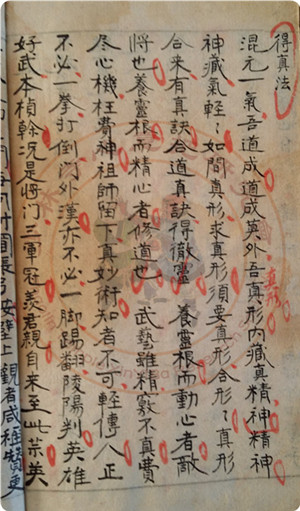 得真法
混元一氣吾道成道成英外吾真形内藏真精神精神
真形
神藏氣輕〻如問真形求真形須要真形合形〻真形
合來有真訣合道真訣得徹靈 養靈根而動心者敵
將也養靈根而精心者修道也 武藝雖精竅不真費
尽心機枉費神祖師留下真妙術知者不可輕傳人正
不必一拳打倒門外漢亦不必一脚踢翻陵陽判英雄
好武本楨幹況是將門三軍冠羨君親自来至此英
長弓安壁上觀者咸雅贊更